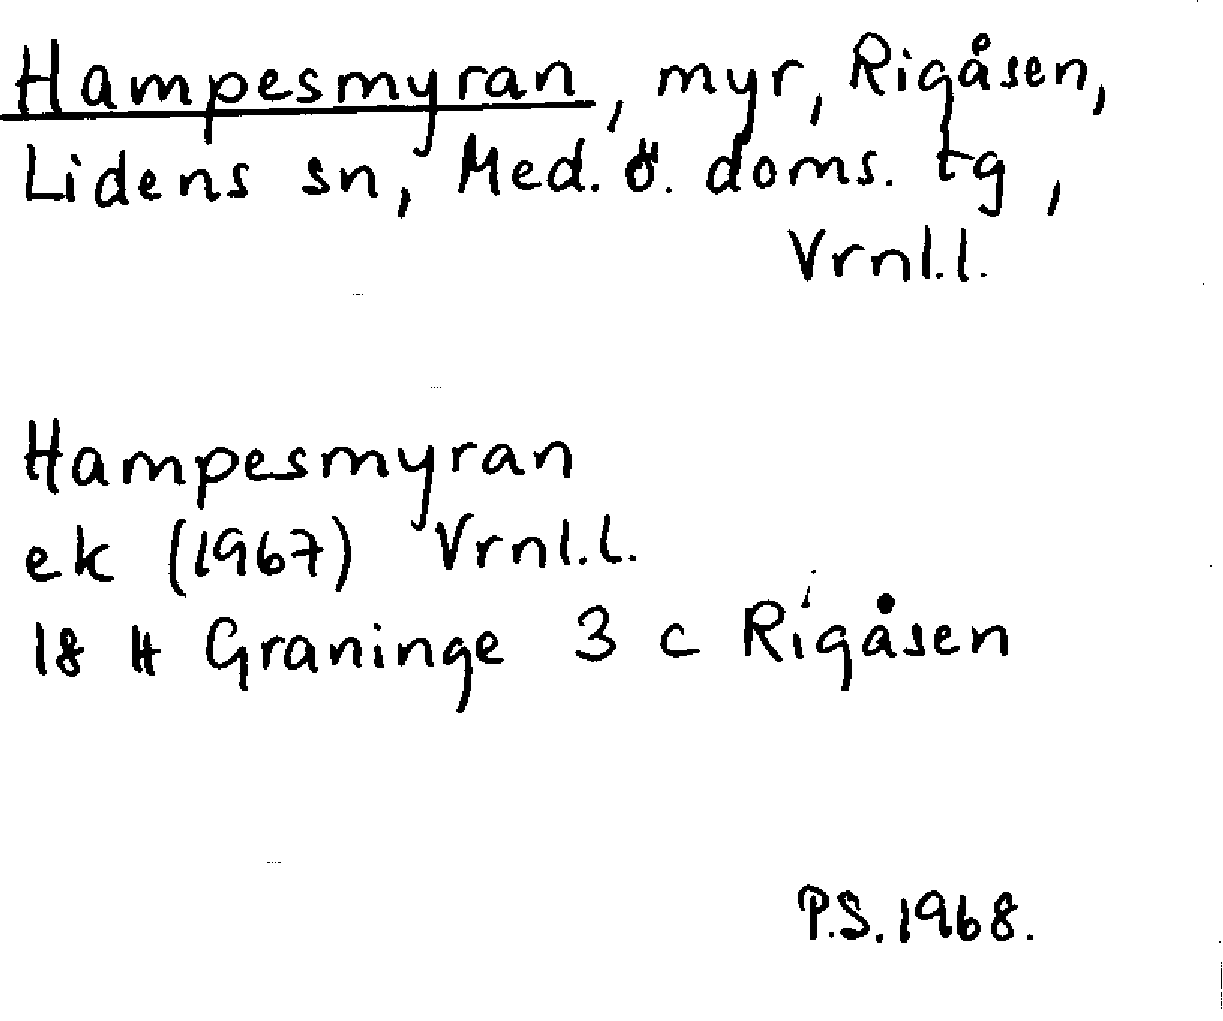 Hampesmyran, myr, Rigåsen,
Lidens sn, Med. ö. doms. tg,
Vrnl.l.
Hampesmyran
ek (1967) Vrnl.l.
18 H Graninge 3 c Rigåsen
P.S. 1968.